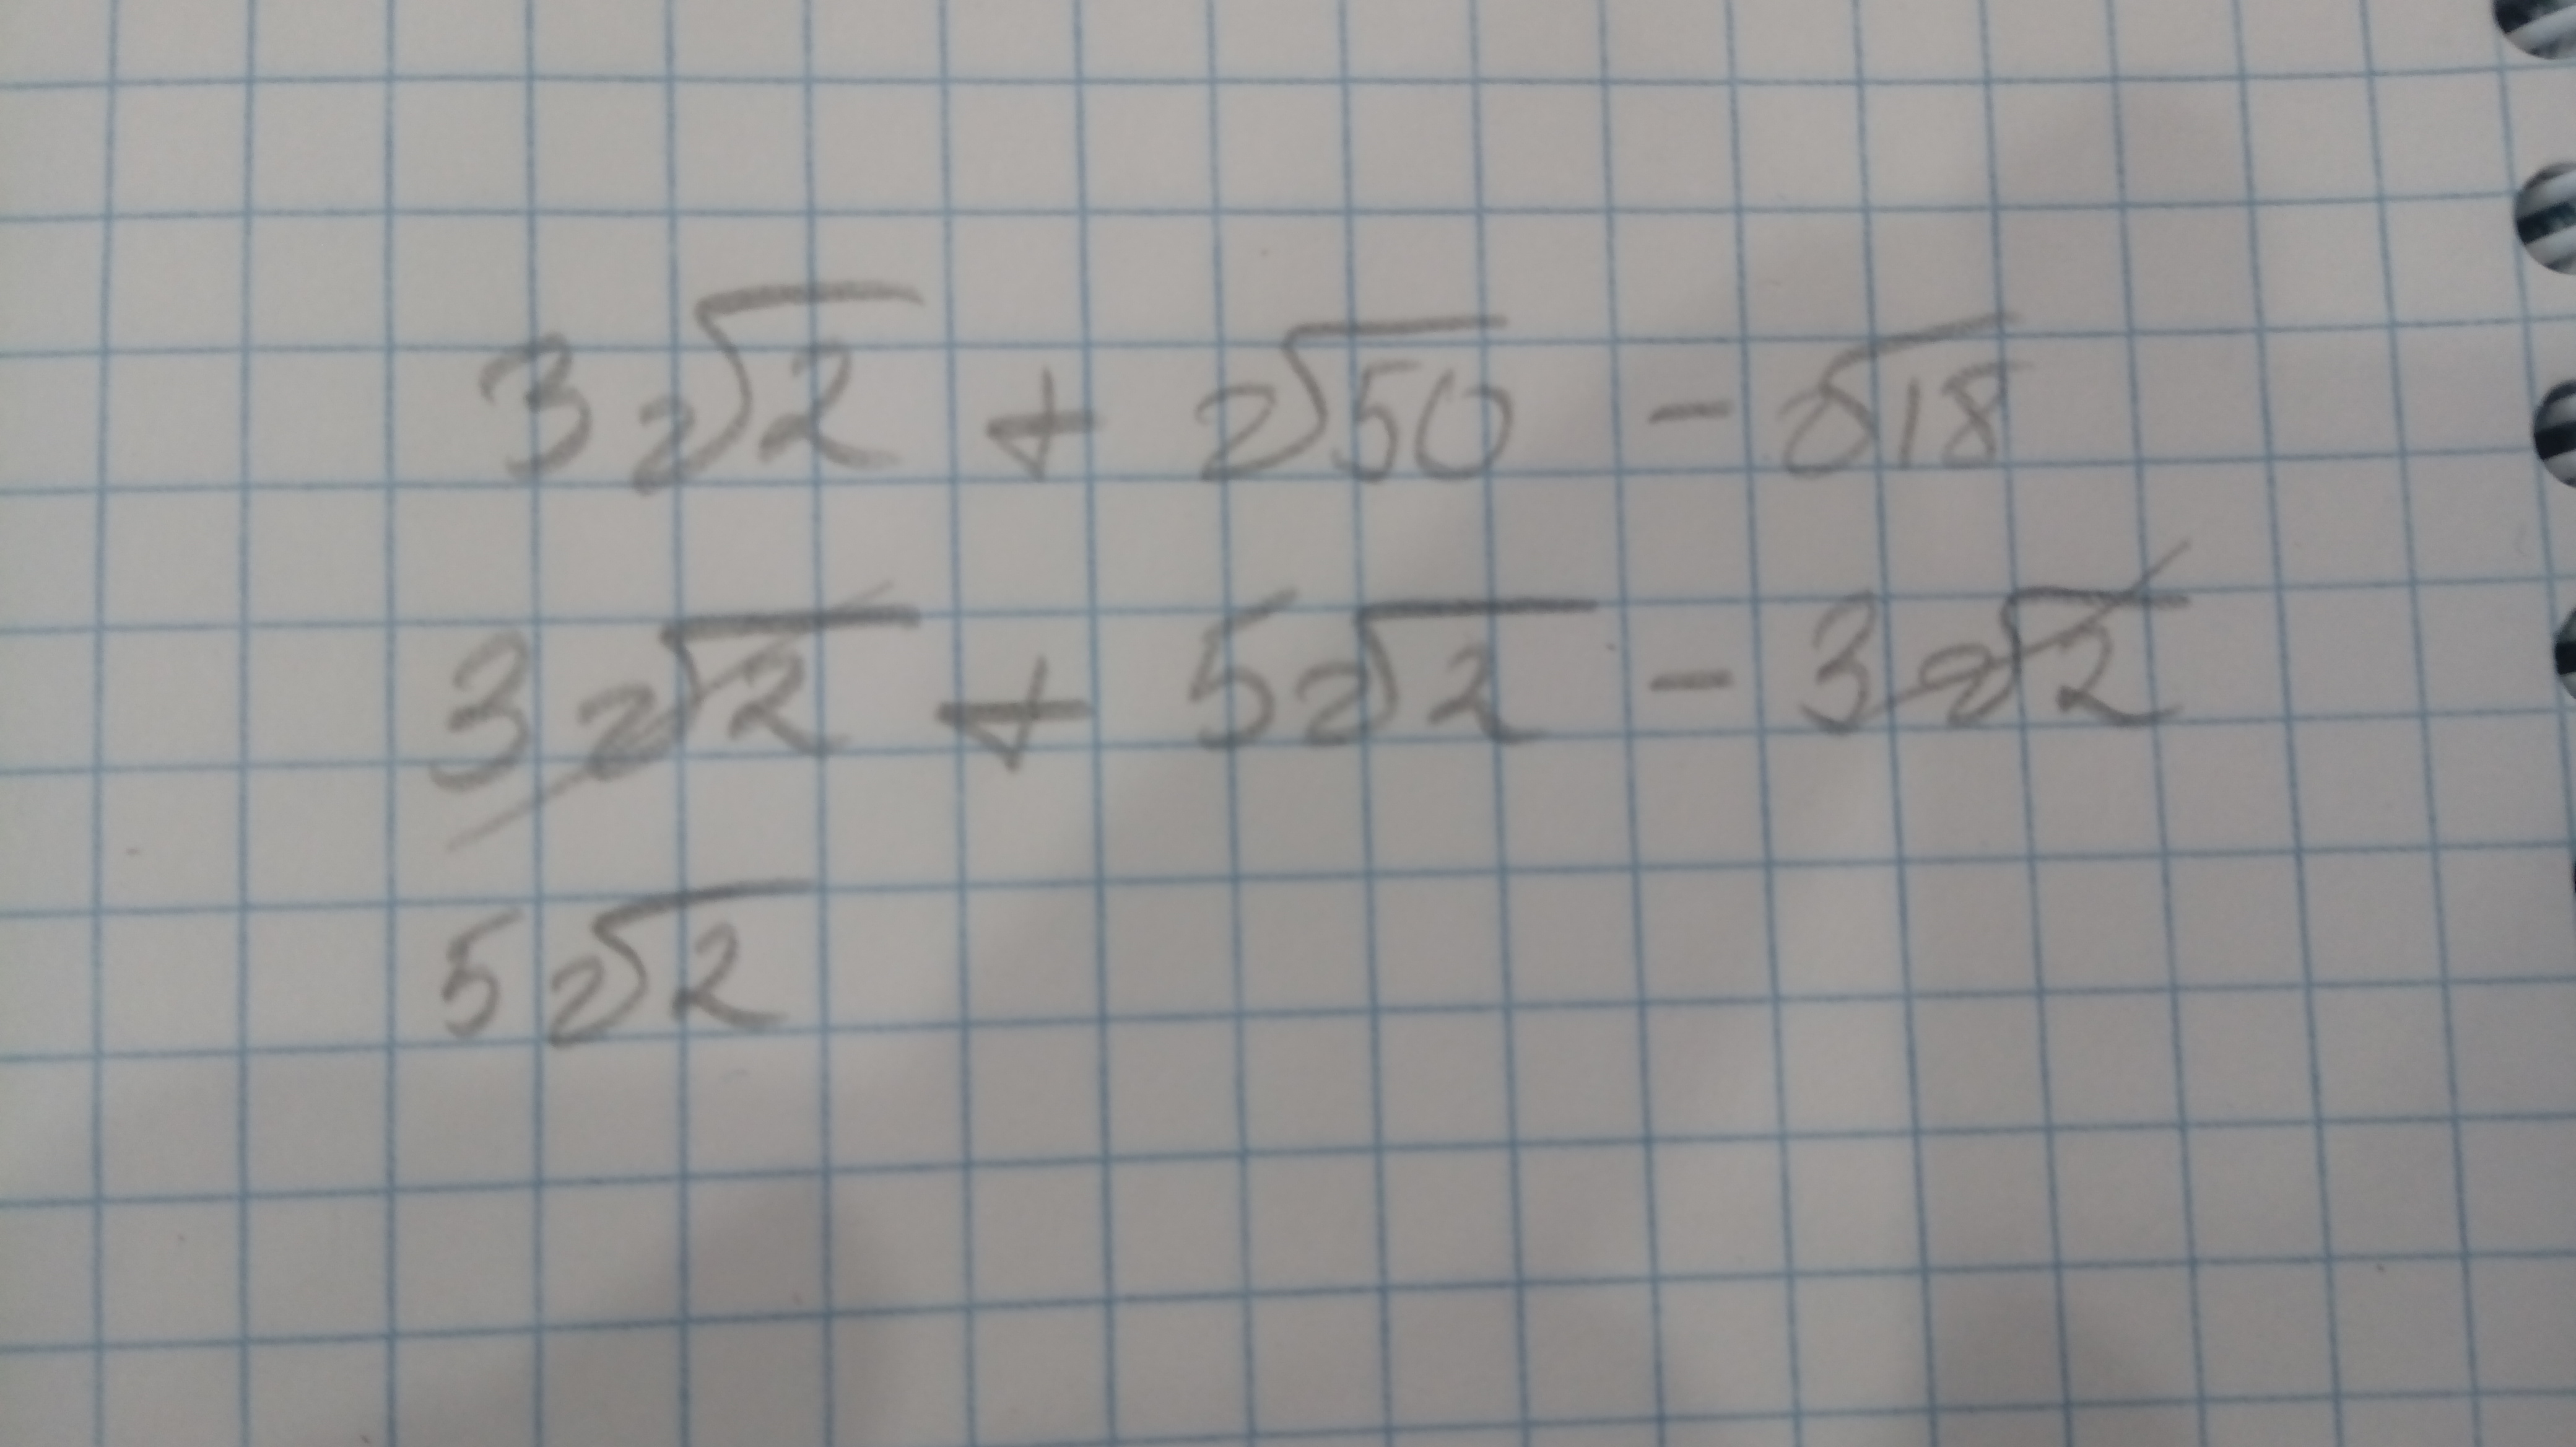 3 2√2 + 2√50 - 2√18
3 2√2 + 5 2√2 - 3 2√2
5 2√2